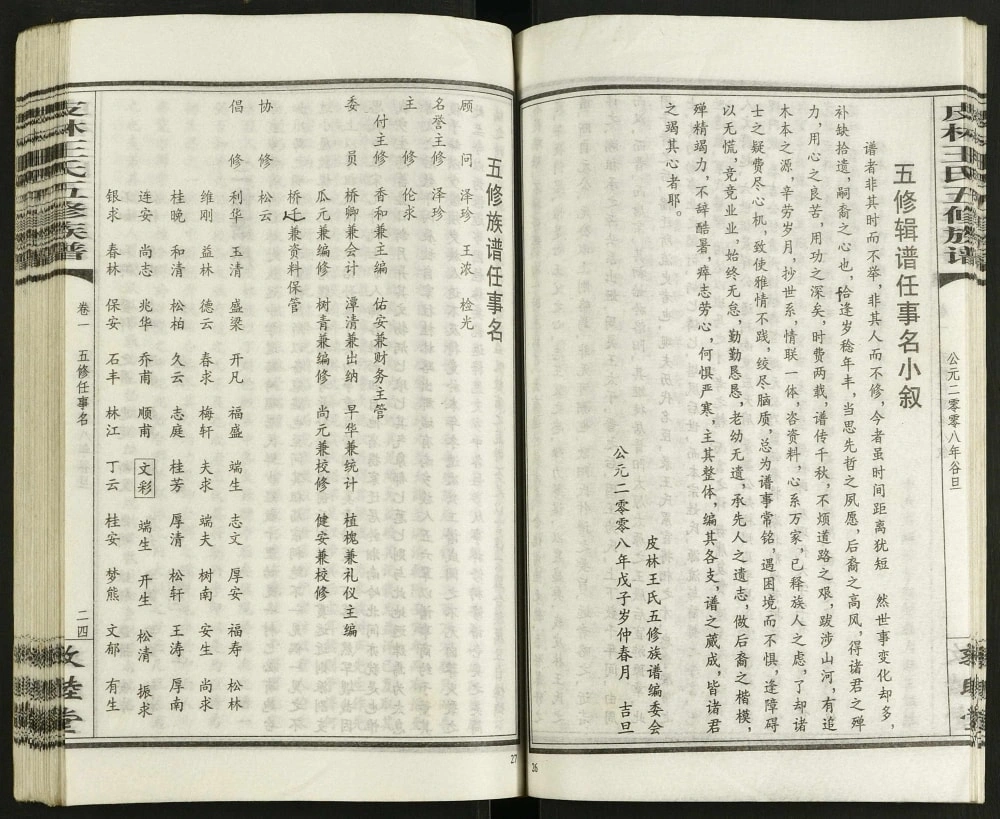 皮林王氏五修族谱
公元二零零八年谷旦
五修辑谱任事名小叙
谱者非其时而不举，非其人而不修，今者虽时间距离犹短 然世事变化却多，
补缺拾遗，嗣裔之心也，恰逢岁稔年丰，当思先哲之夙愿，后裔之高风，得诸君之殚
力，用心之良苦，用功之深矣，时费两载，谱传千秋，不烦道路之艰，跋涉山河，有追
木本之源，辛劳岁月，抄世系，情联一体，咨资料，心系万家，已释族人之虑，了却诸
士之疑费尽心机，致使雅情不践，绞尽脑质，总为谱事常铭，遇困境而不惧，逢障碍
以无慌，竞竞业业，始终无怠，勤勤恳恳，老幼无遗，承先人之遗志，做后裔之楷模，
殚精竭力，不辞酷暑，瘁志劳心，何惧严寒，主其整体，编其各支，谱之葳成，皆诸君
之竭其心者耶。
皮林王氏五修族谱编委会
公元二零零八年戊子岁仲春月 吉旦
26
五修族谱任事名
顾 问 泽珍 王浓 检光
名誉主修 泽珍
主 修 伦求
付主修 香和兼主编 佑安兼财务主管
委 员 桥卿兼会计 潭清兼出纳 早华兼统计 植槐兼礼仪主编
瓜元兼编修 树青兼编修 尚元兼校修 健安兼校修
桥迁兼资料保管
协 修 松云
倡 修 利华 玉清 盛梁 开凡 福盛 端生 志文 厚安 福寿 松林
维刚 益林 德云 春求 梅轩 夫求 端夫 树南 安生 尚求
桂晚 和清 松柏 久云 志庭 桂芳 厚清 松轩 王涛 厚南
连安 尚志 兆华 乔甫 顺甫 文彩 端生 开生 松清 振求
银求 春林 保安 石丰 林江 丁云 桂安 梦熊 文郁 有生
27
皮林王氏五修族谱
卷一 五修任事名
二四
敦睦堂